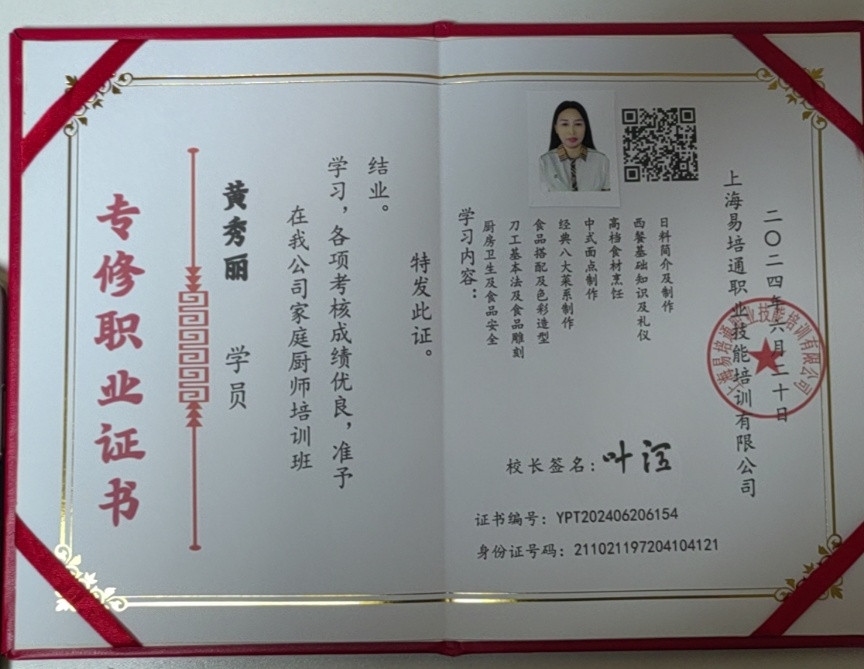 专修职业证书
黄秀丽 学员
在我公司家庭厨师培训班
学习，各项考核成绩优良，准予
结业。
特发此证。
学习内容：
厨房卫生及食品安全
刀工基本法及食品雕刻
食品搭配及色彩造型
经典八大菜系制作
中式面点制作
高档食材烹饪
西餐基础知识及礼仪
日料简介及制作
校长签名：
证书编号：YPT202406206154
身份证号码：211021197204104121
上海易培通职业技能培训有限公司
二〇二四年六月二十日
上海易培通职业技能培训有限公司